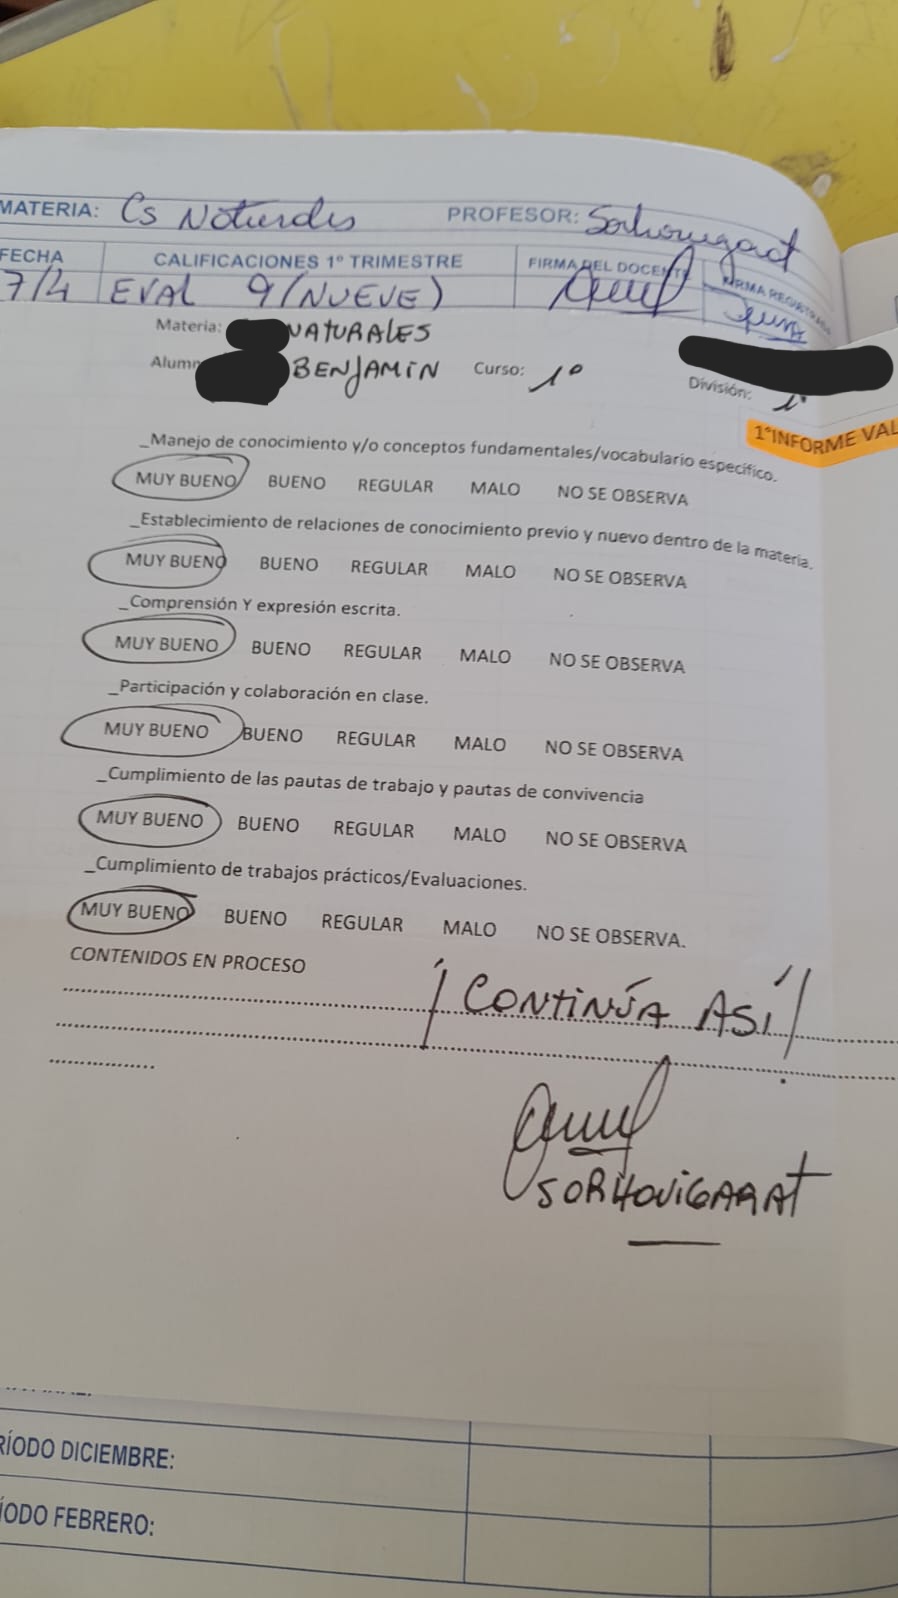 MATERIA: Cs Naturales PROFESOR: Sorhouigarat
FECHA CALIFICACIONES 1º TRIMESTRE FIRMA DEL DOCENTE
7/4 EVAL 9 (NUEVE)
Materia: NATURALES
BENJAMIN Curso: 1º División: 1º
1°INFORME VAL
_Manejo de conocimiento y/o conceptos fundamentales/vocabulario específico.
MUY BUENO BUENO REGULAR MALO NO SE OBSERVA
_Establecimiento de relaciones de conocimiento previo y nuevo dentro de la materia.
MUY BUENO BUENO REGULAR MALO NO SE OBSERVA
_Comprensión Y expresión escrita.
MUY BUENO BUENO REGULAR MALO NO SE OBSERVA
_Participación y colaboración en clase.
MUY BUENO BUENO REGULAR MALO NO SE OBSERVA
_Cumplimiento de las pautas de trabajo y pautas de convivencia
MUY BUENO BUENO REGULAR MALO NO SE OBSERVA
_Cumplimiento de trabajos prácticos/Evaluaciones.
MUY BUENO BUENO REGULAR MALO NO SE OBSERVA.
CONTENIDOS EN PROCESO
¡CONTINÚA ASÍ!
SORHOUIGARAT
RÍODO DICIEMBRE:
ÍODO FEBRERO: